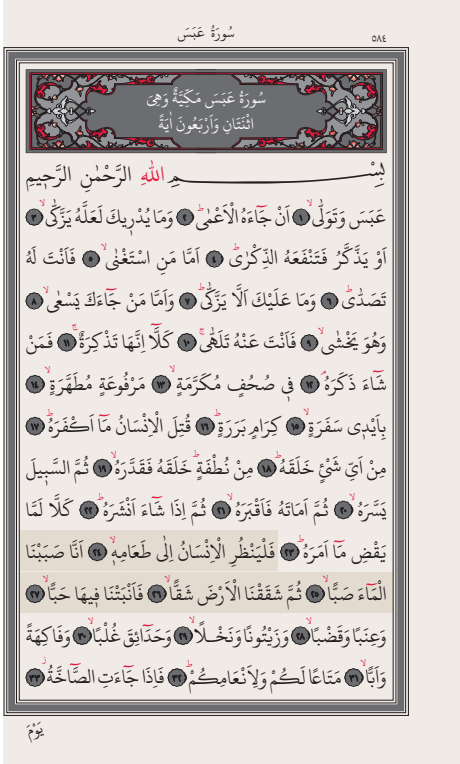 سُورَةُ عَبَسَ ٥٨٤
سُورَةُ عَبَسَ مَكِّيَّةٌ وَهِيَ
اثْنَتَانِ وَاَرْبَعُونَ اٰيَةً
بِسْــــــمِ اللّٰهِ الرَّحْمٰنِ الرَّح۪يمِ
عَبَسَ وَتَوَلّٰىۙ ﴿١﴾ اَنْ جَٓاءَهُ الْاَعْمٰىۜ ﴿٢﴾ وَمَا يُدْر۪يكَ لَعَلَّهُ يَزَّكّٰىۙ ﴿٣﴾
اَوْ يَذَّكَّرُ فَتَنْفَعَهُ الذِّكْرٰىۜ ﴿٤﴾ اَمَّا مَنِ اسْتَغْنٰىۙ ﴿٥﴾ فَاَنْتَ لَهُ
تَصَدّٰىۜ ﴿٦﴾ وَمَا عَلَيْكَ اَلَّا يَزَّكّٰىۜ ﴿٧﴾ وَاَمَّا مَنْ جَٓاءَكَ يَسْعٰىۙ ﴿٨﴾
وَهُوَ يَخْشٰىۙ ﴿٩﴾ فَاَنْتَ عَنْهُ تَلَهّٰىۚ ﴿١٠﴾ كَلَّٓا اِنَّهَا تَذْكِرَةٌۚ ﴿١١﴾ فَمَنْ
شَٓاءَ ذَكَرَهُۢ ﴿١٢﴾ ف۪ي صُحُفٍ مُكَرَّمَةٍۙ ﴿١٣﴾ مَرْفُوعَةٍ مُطَهَّرَةٍۙ ﴿١٤﴾
بِاَيْد۪ي سَفَرَةٍۙ ﴿١٥﴾ كِرَامٍ بَرَرَةٍۜ ﴿١٦﴾ قُتِلَ الْاِنْسَانُ مَٓا اَكْفَرَهُۜ ﴿١٧﴾
مِنْ اَيِّ شَيْءٍ خَلَقَهُۜ ﴿١٨﴾ مِنْ نُطْفَةٍۜ خَلَقَهُ فَقَدَّرَهُۙ ﴿١٩﴾ ثُمَّ السَّب۪يلَ
يَسَّرَهُۙ ﴿٢٠﴾ ثُمَّ اَمَاتَهُ فَاَقْبَرَهُۙ ﴿٢١﴾ ثُمَّ اِذَا شَٓاءَ اَنْشَرَهُۜ ﴿٢٢﴾ كَلَّا لَمَّا
يَقْضِ مَٓا اَمَرَهُۜ ﴿٢٣﴾ فَلْيَنْظُرِ الْاِنْسَانُ اِلٰى طَعَامِه۪ۙ ﴿٢٤﴾ اَنَّا صَبَبْنَا
الْمَٓاءَ صَباًّۙ ﴿٢٥﴾ ثُمَّ شَقَقْنَا الْاَرْضَ شَقاًّۙ ﴿٢٦﴾ فَاَنْبَتْنَا ف۪يهَا حَباًّۙ ﴿٢٧﴾
وَعِنَبًا وَقَضْبًاۙ ﴿٢٨﴾ وَزَيْتُونًا وَنَخْلًاۙ ﴿٢٩﴾ وَحَدَٓائِقَ غُلْبًاۙ ﴿٣٠﴾ وَفَاكِهَةً
وَاَبًّاۙ ﴿٣١﴾ مَتَاعًا لَكُمْ وَلِاَنْعَامِكُمْۜ ﴿٣٢﴾ فَاِذَا جَٓاءَتِ الصَّٓاخَّةُۘ ﴿٣٣﴾
يَوْمَ